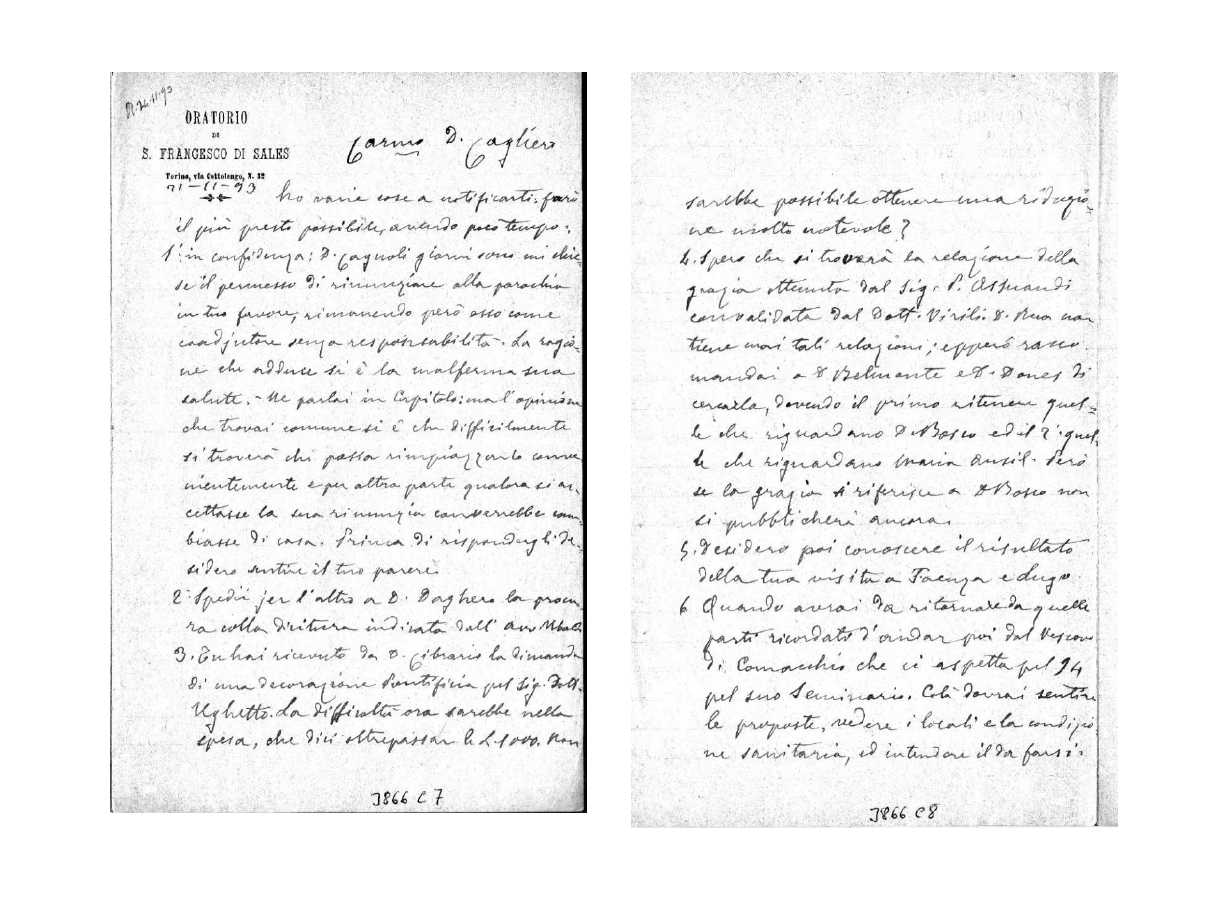 R. 24-11-93
ORATORIO
DI
S. FRANCESCO DI SALES
Torino, via Cottolengo, N. 32
21-11-93
Carmo D. Cagliero
ho varie cose a notificarti: farò
il più presto possibile, avendo poco tempo:
1º in confidenza: D. Cagnoli giorni sono mi chie-
se il permesso di rinunziare alla parochia
in tuo favore, rimanendo però esso come
coadjutore senza responsabilità. La ragio-
ne che adduce si è la malferma sua
salute. - Ne parlai in Capitolo: ma l'opinione
che trovai comune si è che difficilmente
si troverà chi possa rimpiazzarlo conve
nientemente e per altra parte qualora si ac-
cettasse la sua rinunzia converrebbe cam-
biasse di casa. Prima di rispondergli de-
sidero sentire il tuo parere.
2º Spedii jer l'altro a D. Daghero la procu
ra colla dicitura indicata dall' avv.
3. Tu hai ricevuto da D. Cibrario la dimanda
di una decorazione Pontificia pel Sig. Dott.
Ughetto. La difficoltà ora sarebbe nella
spesa, che dici oltrepassar le L. 1000. Non
3866 C 7
sarebbe possibile ottenere una riduzio-
ne molto notevole?
4. Spero che si troverà la relazione della
grazia ottenuta dal Sig. P. Assuandi
convalidata dal Dott. Virili. D. Rua non
tiene mai tali relazioni; epperò racco
mandai a D Belmonte e D. Dones di
cercarla, dovendo il primo ritenere quel-
le che riguardano D Bosco ed il 2º quel
le che riguardano Maria Ausil. Però
se la grazia si riferisce a D Bosco non
si pubblicherà ancora.
5. Desidero poi conoscere il risultato
della tua visita a Faenza e Lugo.
6 Quando avrai da ritornare da quelle
parti ricordati d'andar poi dal Vescovo
di Comacchio che ci aspetta pel 94
pel suo Seminario. Colà dovrai sentire
le proposte, vedere i locali e la condizio
ne sanitaria, ed intendere il da farsi.
3866 C 8